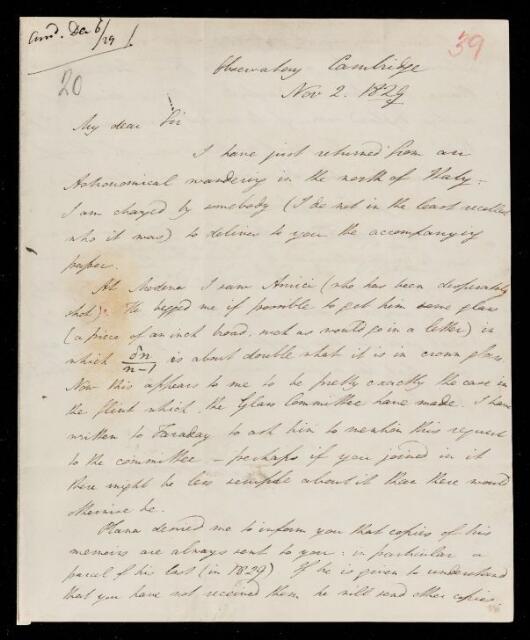 Ansd. Dec 6/29
39
20
Observatory Cambridge
Nov 2. 1829
My dear Sir
I have just returned from an
Astronomical wandering in the north of Italy:
I am charged by somebody (I do not in the least recollect
who it was) to deliver to you the accompanying
paper.
At Modena I saw Amici (who has been desperately
shot). He begged me if possible to get him some glass
(a piece of an inch broad, such as would go in a letter) in
which δn/n-1 is about double what it is in crown glass.
Now this appears to me to be pretty exactly the case in
the flint which the Glass Committee have made. I have
written to Faraday to ask him to mention this request
to the committee – perhaps if you joined in it
there might be less scruple about it than there would
otherwise be.
Plana desired me to inform you that copies of his
memoirs are always sent to you: in particular a
parcel of his last (in 1829) If he is given to understand
that you have not received them he will send other copies.